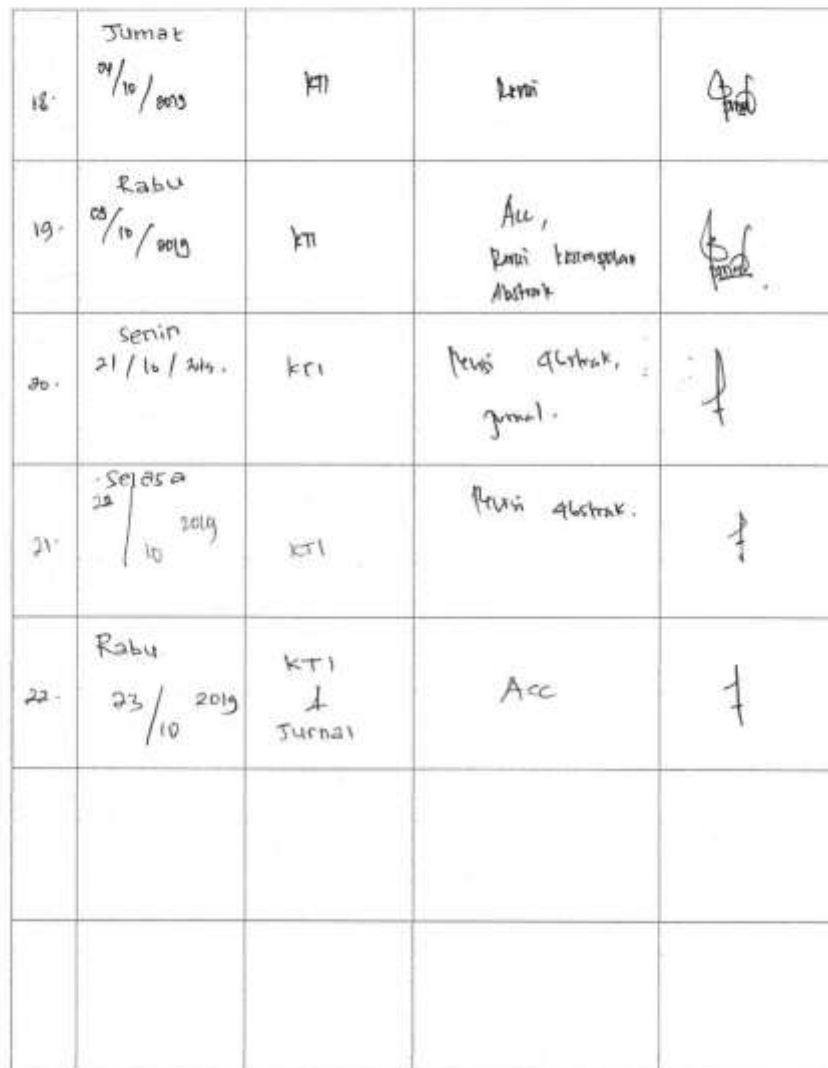 18.
Jumat
04/10/2019
KTI
Revisi
19.
Rabu
09/10/2019
KTI
Acc,
Revisi kesimpulan
Abstrak
20.
Senin
21/10/2019.
KTI
Revisi Abstrak,
jurnal.
21.
Selasa
22/10 2019
KTI
Revisi Abstrak.
22.
Rabu
23/10 2019
KTI
&
Jurnal
Acc